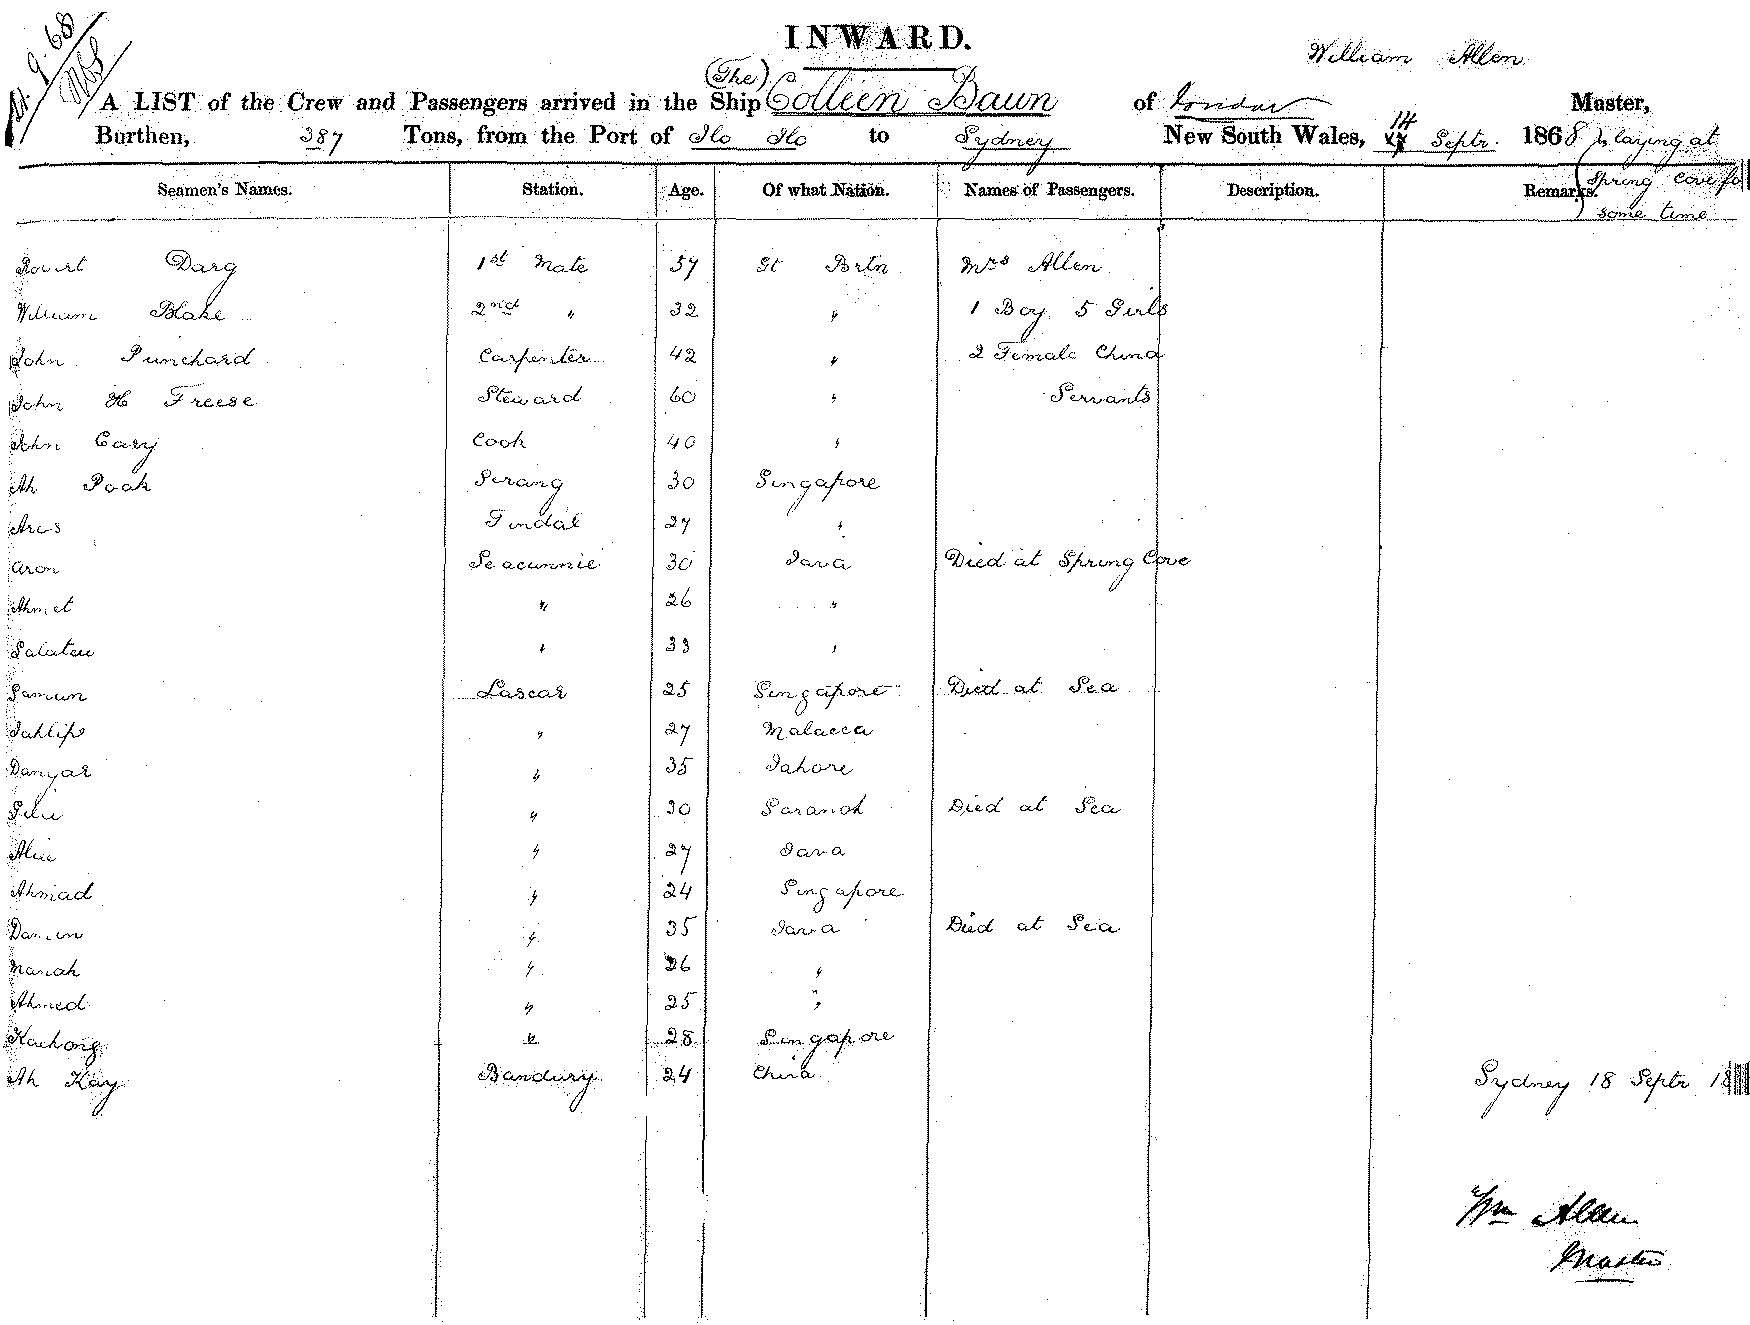 INWARD.
14.9.68
William Allen
A LIST of the Crew and Passengers arrived in the Ship (The) Colleen Bawn of London Master,
Burthen, 387 Tons, from the Port of Ilo Ilo to Sydney New South Wales, 14 Septr. 1868 laying at
Spring Cove for
some time
Seamen's Names. Station. Age. Of what Nation. Names of Passengers. Description. Remarks.
Robert Darg 1st Mate 57 Gt Brtn Mrs Allen
William Blake 2nd " 32 " 1 Boy 5 Girls
John Punchard Carpenter 42 " 2 Female China
John H Freese Steward 60 " Servants
John Cary Cook 40 "
Ah Poak Serang 30 Singapore
Tindal 27 "
Aron Seacunnie 30 Java Died at Spring Cove
Ahmet " 26 "
" 33 "
Samun Lascar 25 Singapore Died at Sea
Jahlip " 27 Malacca
Danyar " 35 Jahore
" 30 Died at Sea
Alie " 27 Java
Ahmad " 24 Singapore
" 35 Java Died at Sea
Manah " 26 "
Ahmed " 25 "
Kachong " 28 Singapore
Ah Kay Bandury 24 China
Sydney 18 Septr 18
Wm Allen
Master